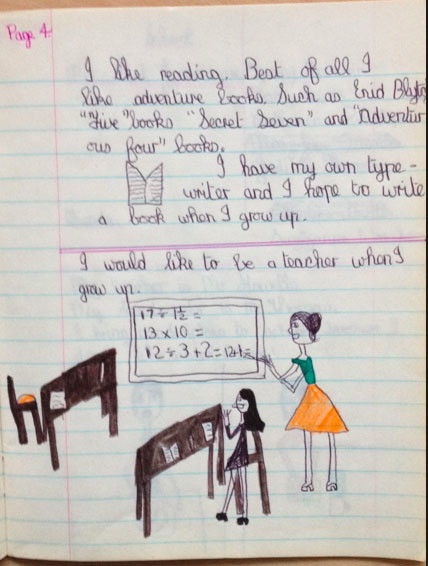 Page 4.
I like reading. Best of all I
like adventure books. Such as Enid Blyton
"Five" books "Secret Seven" and "Adventur
ous Four" books.
I have my own type-
writer and I hope to write
a book when I grow up.
I would like to be a teacher when I
grow up.
17 ÷ 1½ =
13 x 10 =
12 ÷ 3 + 2 = 12+1=